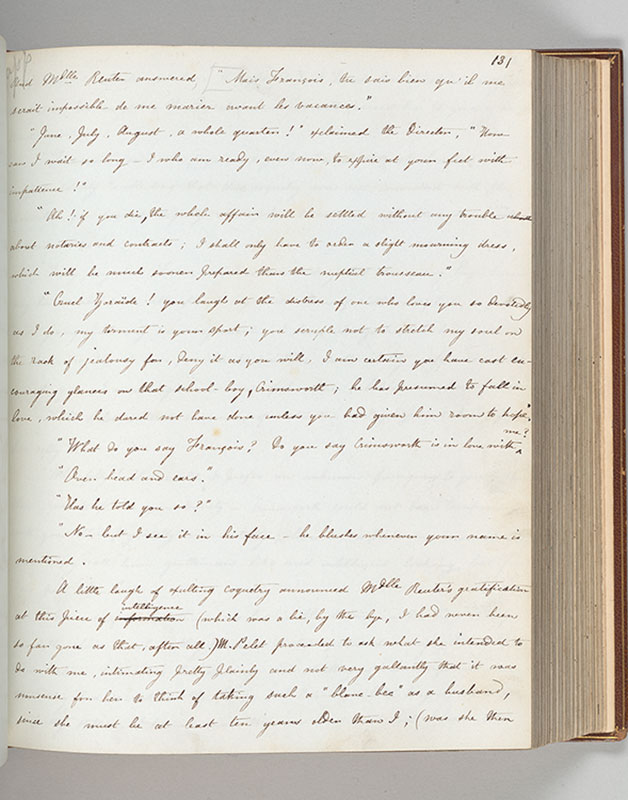 131
And Mdlle Reuter answered, "Mais François, tu sais bien qu'il me
serait impossible de me marier avant les vacances."
"June, July, August, a whole quarter!" exclaimed the Director, "How
can I wait so long – I who am ready, even now, to expire at your feet with
impatience!"
"Ah! if you die, the whole affair will be settled without any trouble
about notaries and contracts; I shall only have to order a slight mourning dress,
which will be much sooner prepared than the nuptial trousseau."
"Cruel Zoraïde! you laugh at the distress of one who loves you so devotedly
as I do, my torment is your sport; you scruple not to stretch my soul on
the rack of jealousy for, deny it as you will, I am certain you have cast en-
couraging glances on that school-boy, Crimsworth; he has presumed to fall in
love, which he dared not have done unless you had given him room to hope."
"What do you say François? Do you say Crimsworth is in love with me?"
"Over head and ears."
"Has he told you so?"
"No – but I see it in his face – he blushes whenever your name is
mentioned.
A little laugh of exulting coquetry announced Mdlle Reuter's gratification
at this piece of information intelligence (which was a lie, by the bye, I had never been
so far gone as that, after all.) M. Pelet proceeded to ask what she intended to
do with me, intimating pretty plainly and not very gallantly that it was
nonsense for her to think of taking such a "blanc-bec" as a husband,
since she must be at least ten years older than I; (was she then